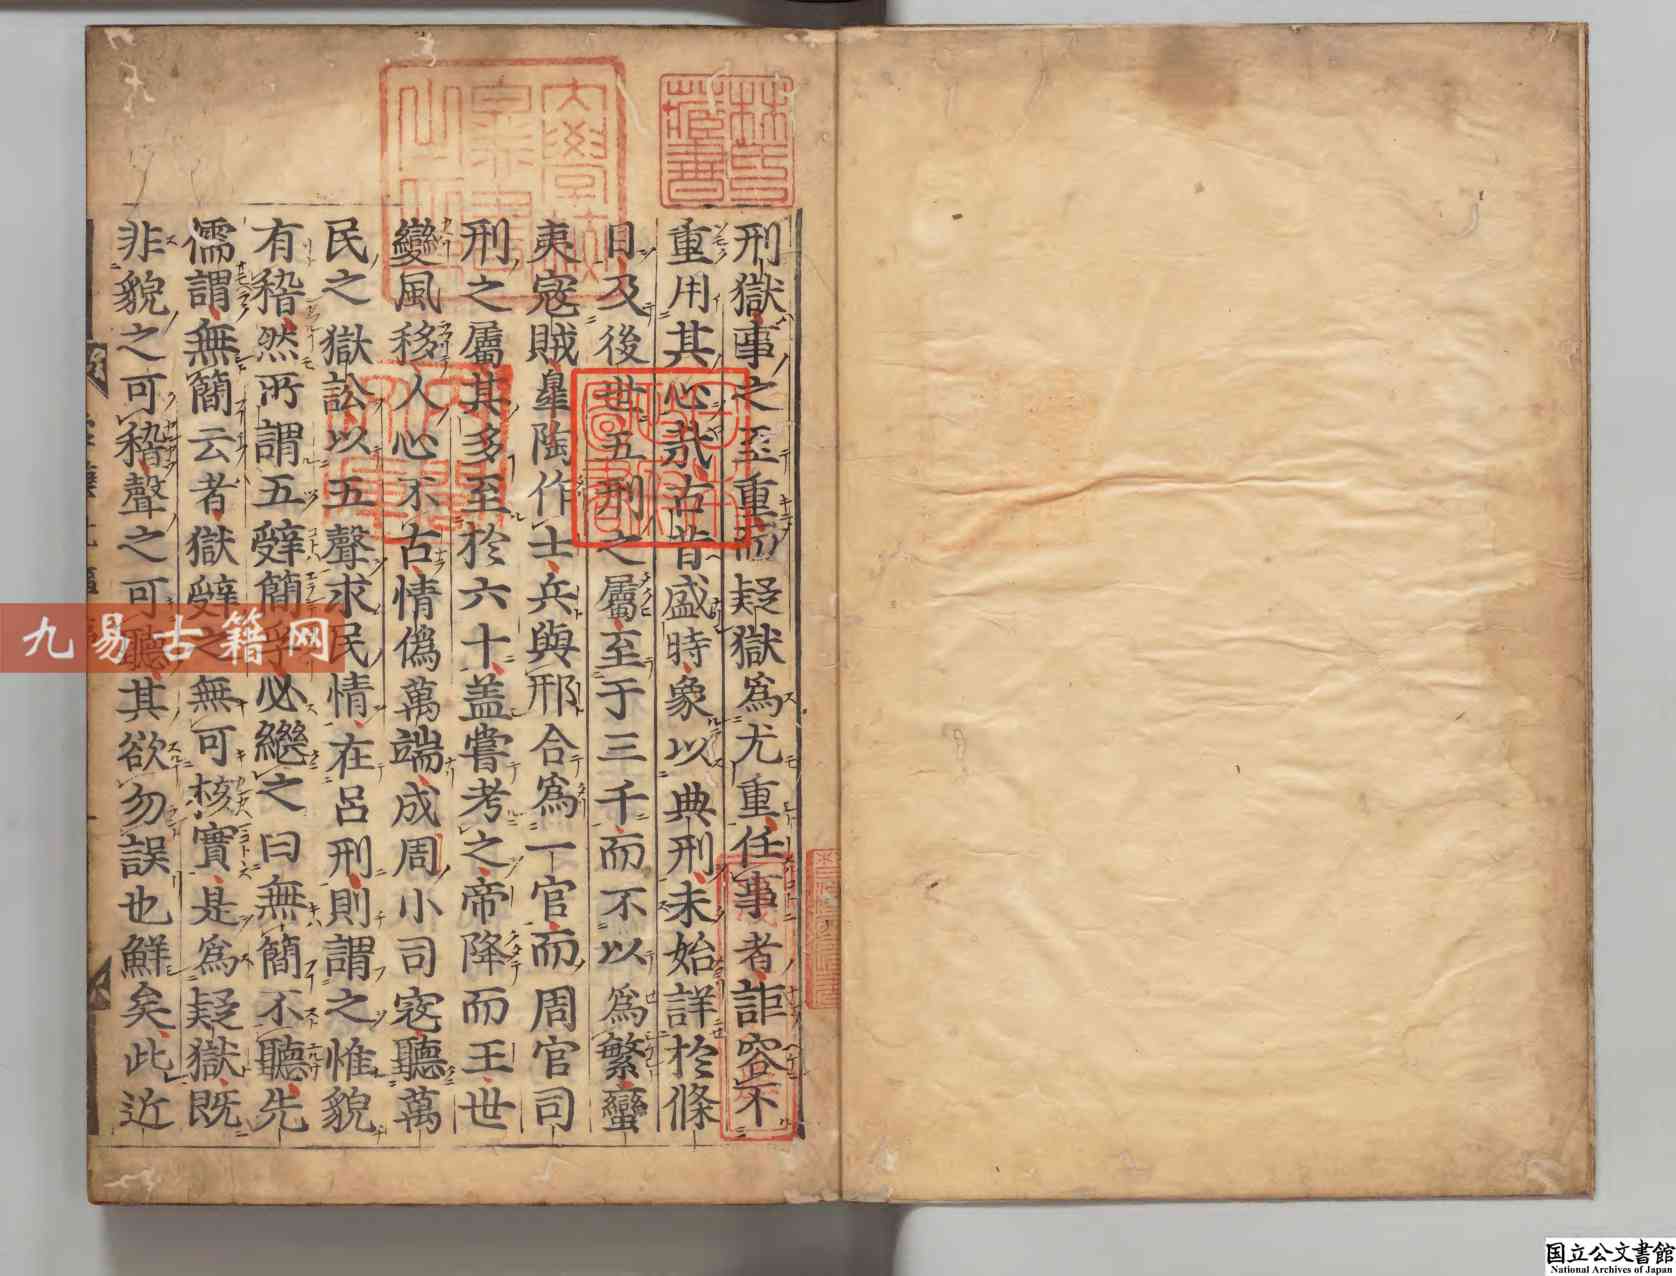 刑獄事之至重而疑獄爲尤重任事者詎容不
重用其心㢤古昔盛時象以典刑未始詳於條
目及後世五刑之屬至于三千而不以爲繁蠻
夷寇賊臯陶作士兵與邢合爲一官而周官司
刑之屬其多至於六十盖嘗考之帝降而王世
變風移人心不古情僞萬端成周小司寇聽萬
民之獄訟以五聲求民情在呂刑則謂之惟貌
有稽然所謂五辤簡孚必繼之曰無簡不聽先
儒謂無簡云者獄辤之無可核實是爲疑獄既
非貌之可稽聲之可聽其欲勿誤也鮮矣此近
林氏
藏書
九易古籍网
国立公文書館
National Archives of Japan